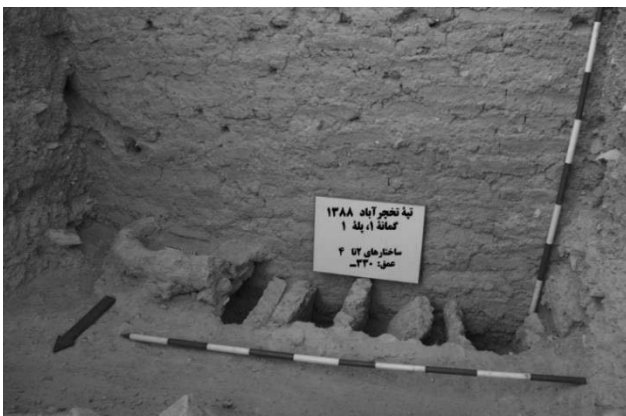 تپهٔ تخچرآباد ۱۳۸۸
گمانهٔ ۱، پلهٔ ۱
ساختارهای ۲تا ۴
عمق: ۳۳۰-